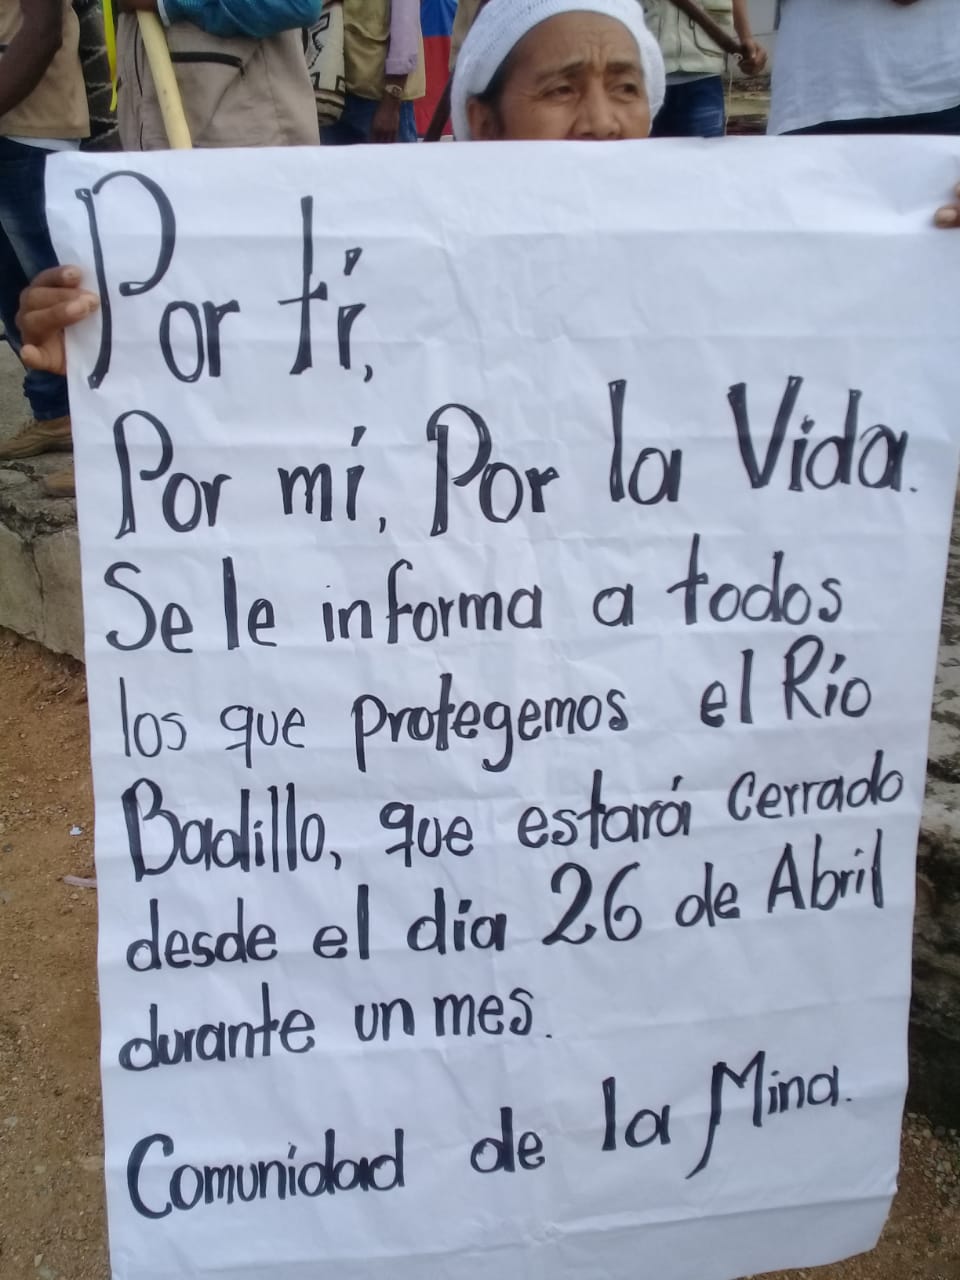 Por tí,
Por mí, Por la Vida.
Se le informa a todos
los que protegemos el Río
Badillo, que estará cerrado
desde el día 26 de Abril
durante un mes.
Comunidad de la Mina.